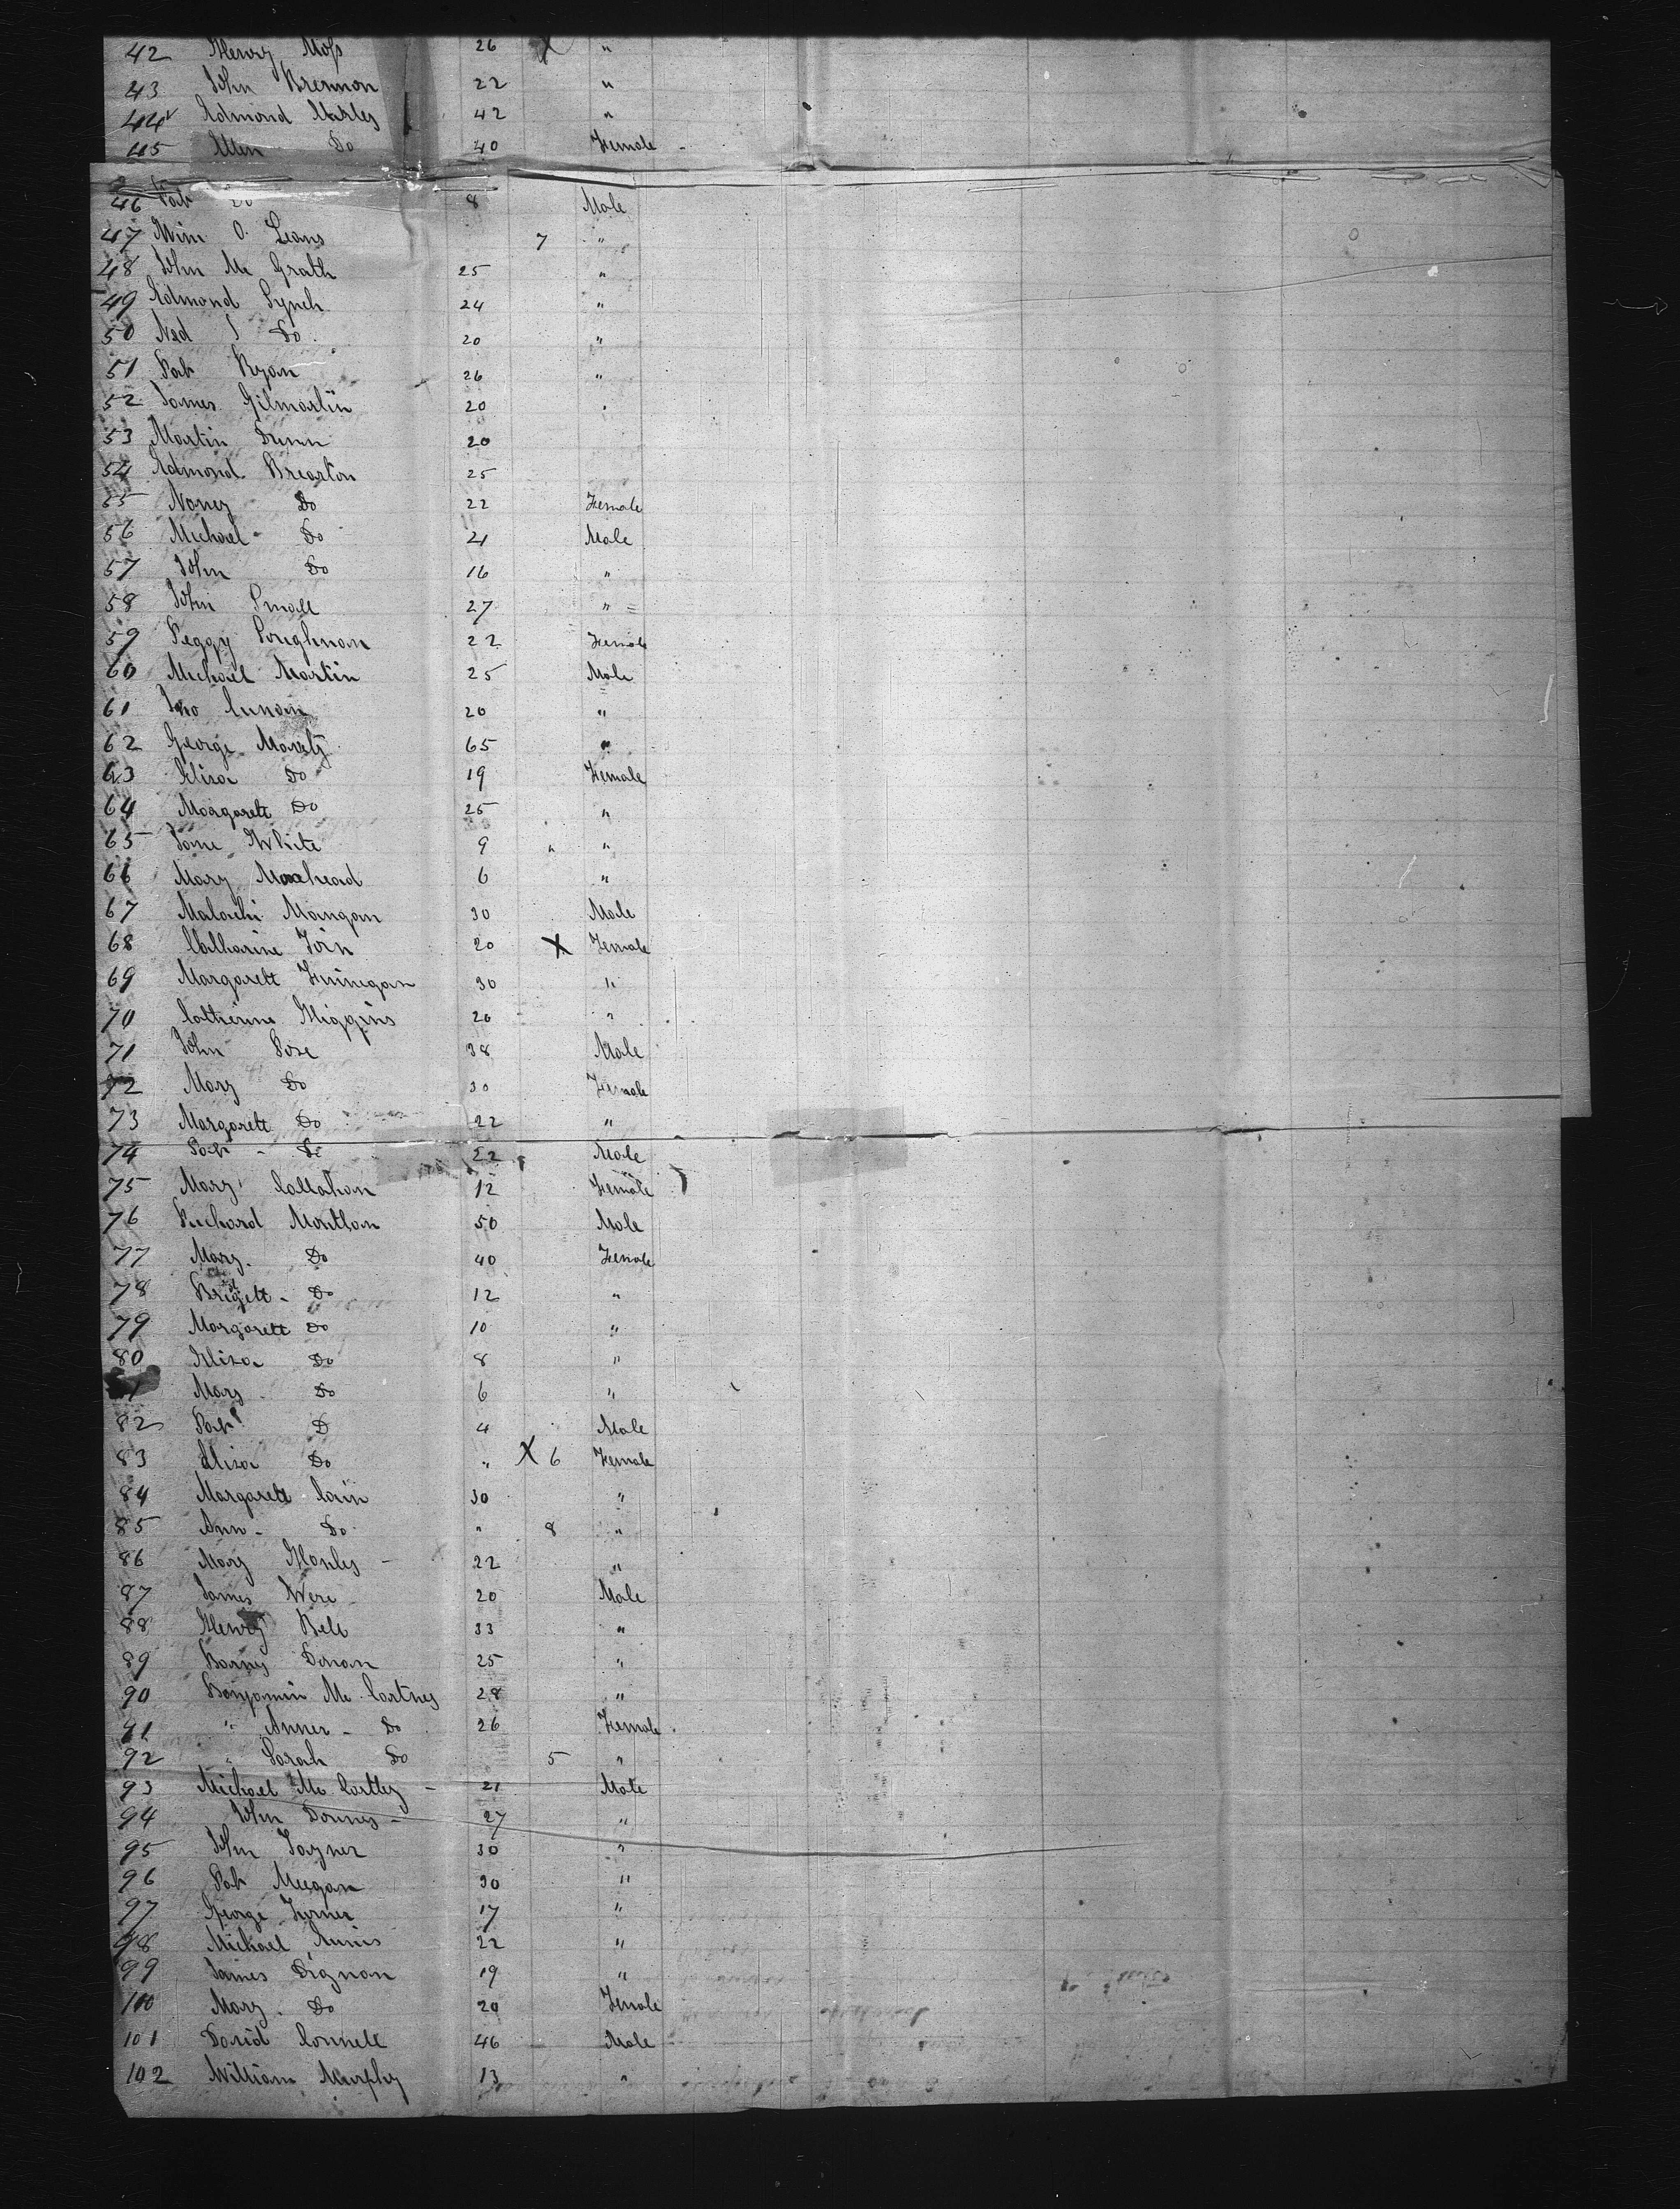 42 Henry Moss 26 X "
43 John Brennon 22 "
44 Edmond 42 "
45 Ellen Do 40 Female
46 Pat Do 8 Male
47 Wim O. Leans 7 "
48 John Mc Grath 25 "
49 Edmond Lynch 24 "
50 Ned Do 20 "
51 Pat Ryan 26 "
52 James Gilmartin 20 "
53 Martin Dunn 20
54 Edmond Brearton 25
55 Nancy Do 22 Female
56 Michael Do 21 Male
57 John Do 16 "
58 John Small 27 "
59 Peggy Loughnan 22 Female
60 Michael Martin 25 Male
61 20 "
62 George 65 "
63 Eliza Do 19 Female
64 Margarett Do 25 "
65 Jane White 9 " "
66 Mary 6 "
67 Malachi Mangan 30 Male
68 Catharine 20 X Female
69 Margarett Finnegan 30 "
70 Catherine Higgins 26 "
71 John 38 Male
72 Mary Do 30 Female
73 Margarett Do 22 "
74 Pat Do 22 Male
75 Mary Callahan 12 Female
76 Richard 50 Male
77 Mary Do 40 Female
78 Brigett Do 12 "
79 Margarett Do 10 "
80 Eliza Do 8 "
Mary Do 6 "
82 Pat D 4 Male
83 Eliza Do " X 6 Female
84 Margarett Cain 30 "
85 Ann Do " 8 "
86 Mary Hanley 22 "
87 James Were 20 Male
88 Henry Bell 33 "
89 Barney Donan 25 "
90 Benjamin Mc Cartney 28 "
91 " Anner Do 26 Female
92 " Sarah Do 5 "
93 Michael Mc Cartley 21 Male
94 John 27 "
95 John Joyner 30 "
96 Pat Meegan 30 "
97 George Turner 17 "
98 Michael 22 "
99 James Dignan 19 "
100 Mary Do 20 Female
101 David Connell 46 Male
102 William Murphy 13 "